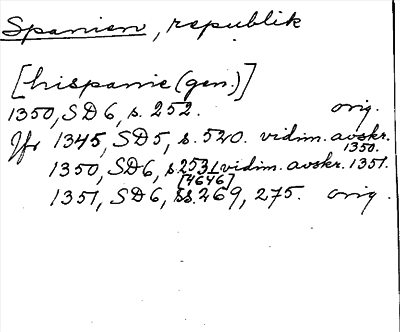 Spanien, republik
[hispanie (gen.)]
1350, SD6, s. 252. orig.
Jfr 1345, SD5, s. 520. vidim. avskr. 1350.
1350, SD6, s. 253 vidim. avskr. 1351.
[4646]
1351, SD6, ss. 269, 275. orig.